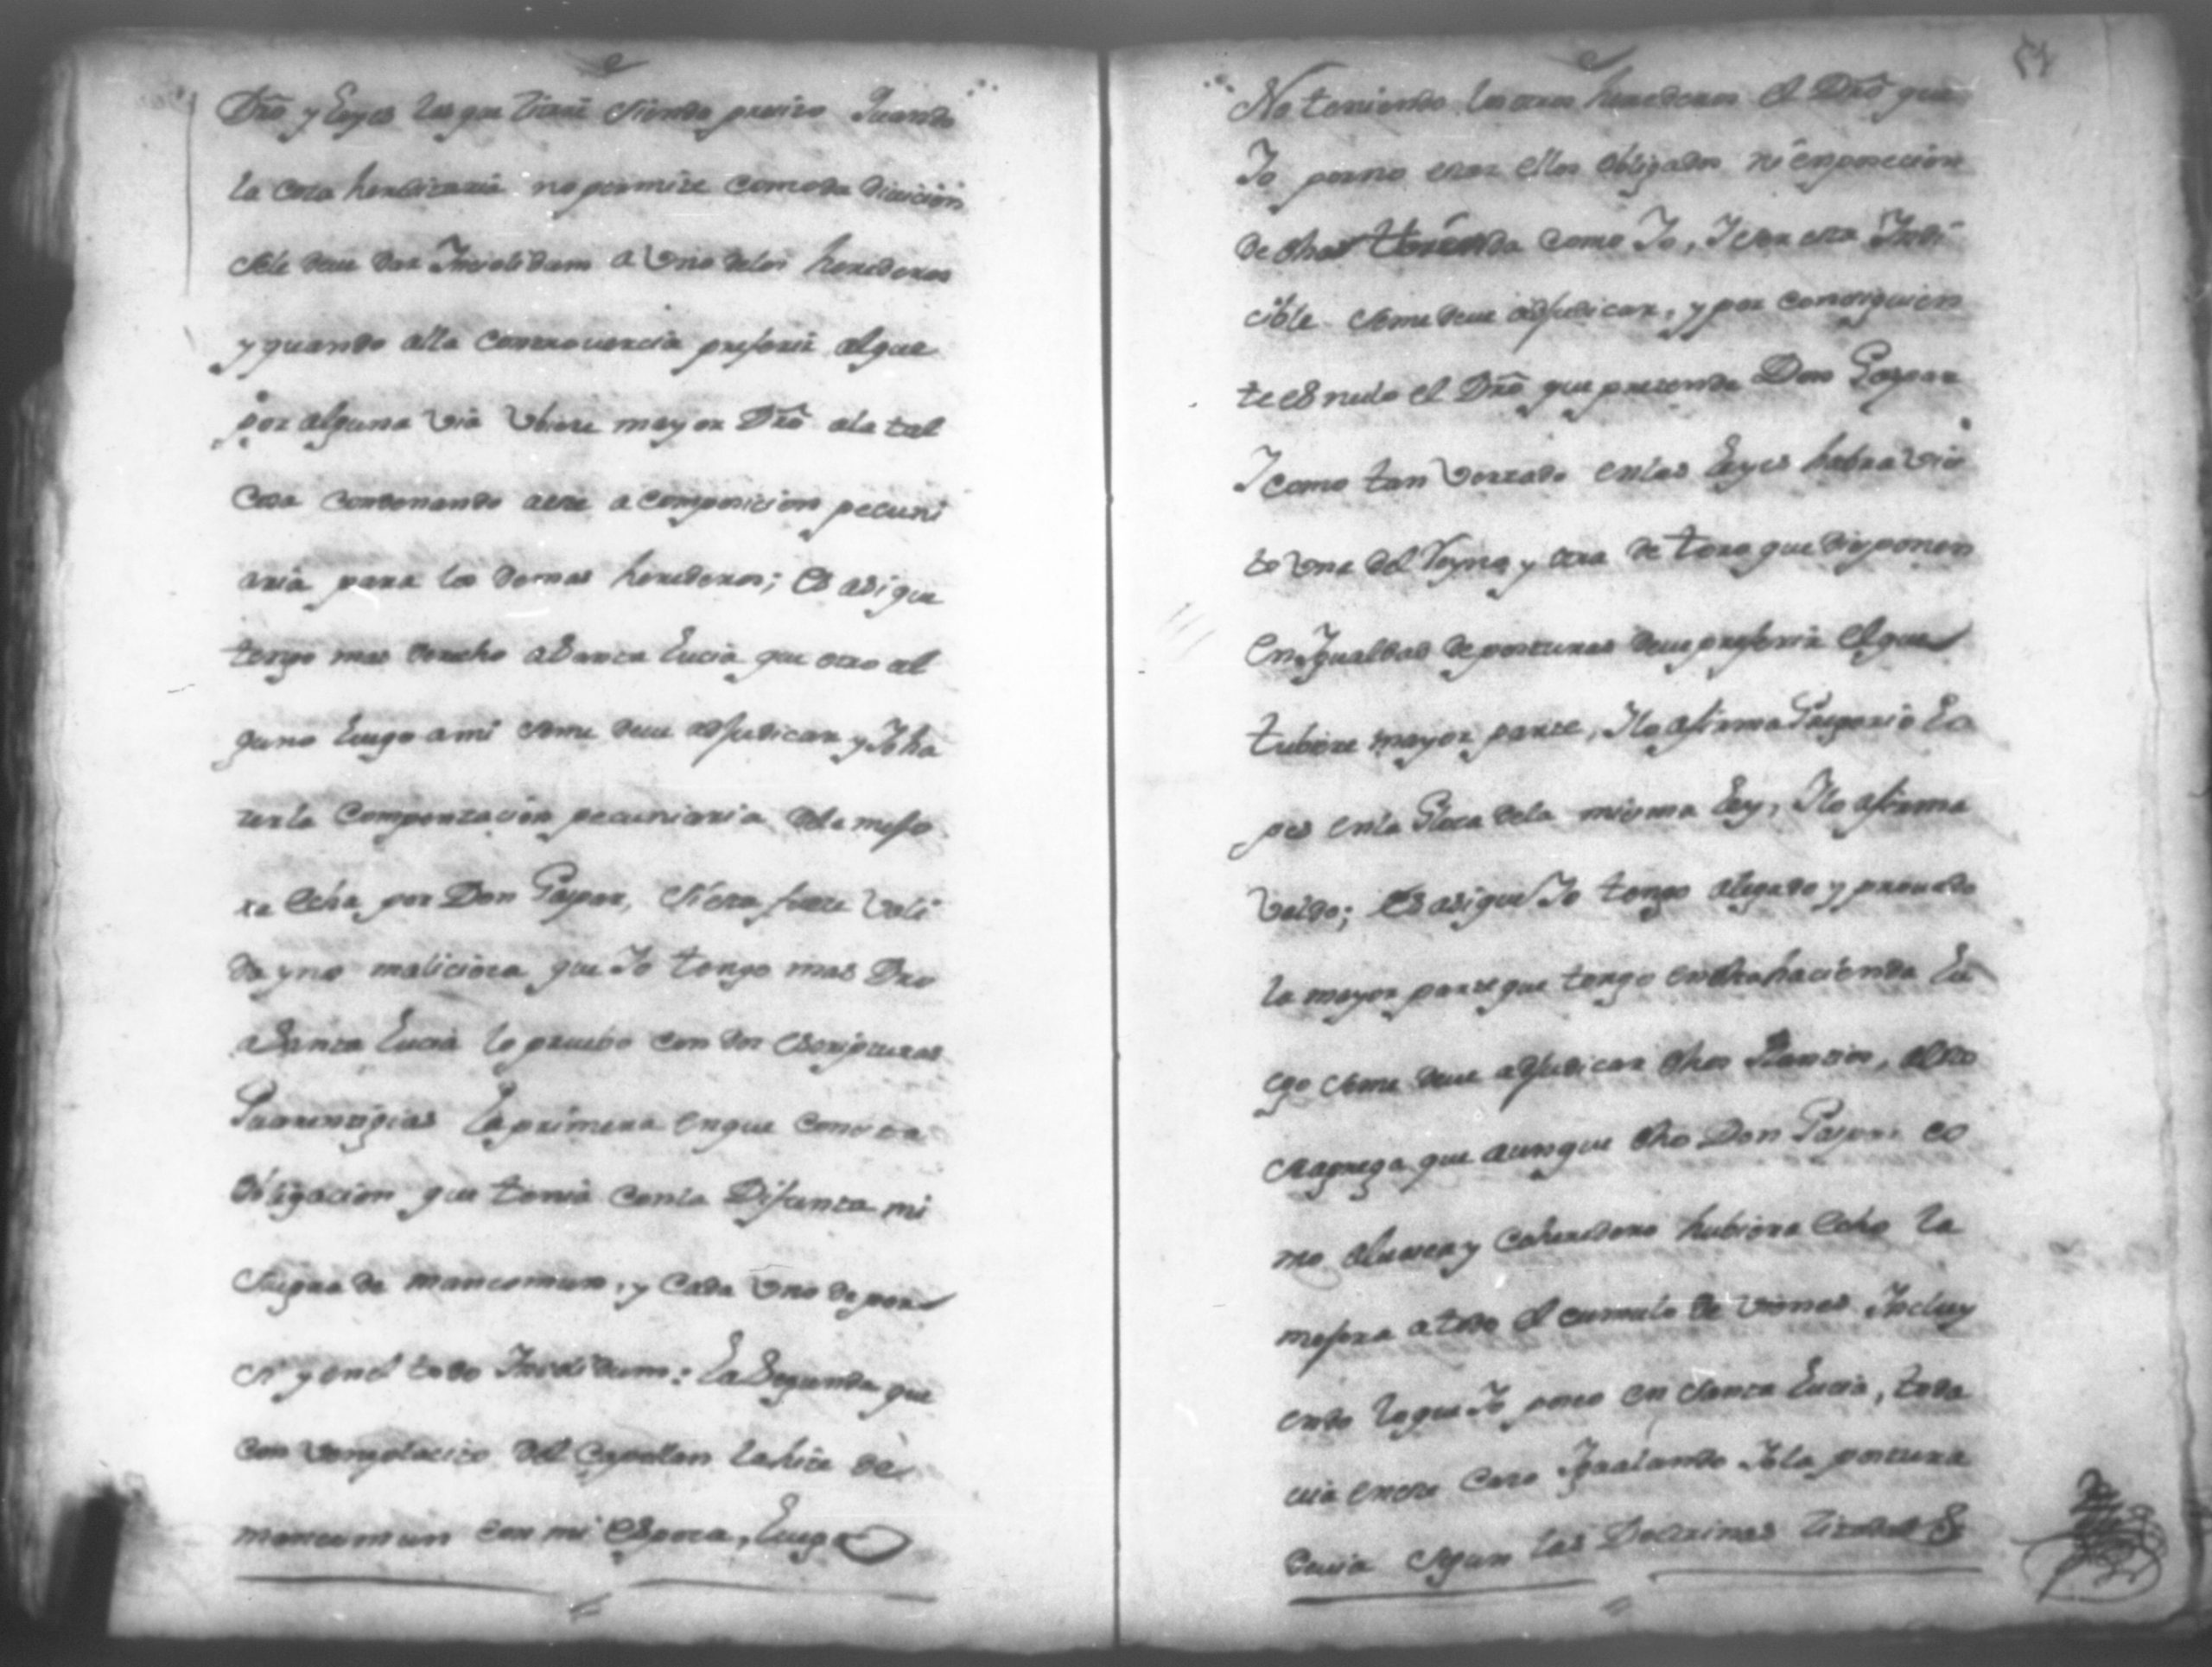 Dro y Leyes los que tiene siendo preciso Quando
la cosa hereditaria no permite comoda diuicion
sele deue dar Insolidum a Vno delos herederos
y quando alla controuercia preferir alque
por alguna via Vbiere mayor Dro ala tal
Cosa condenando aese a composicion pecuni
aria para los demas herederos; Es asi que
tengo mas derecho aSanta Lucia que otro al
guno Luego ami seme deue adjudicar y Yo ha
zer la Compenzacion pecuniaria dela mejo
ra echa por Don Gaspar, si esta fuere vali
da y no maliciosa que Yo tengo mas Dro
aSanta Lucia lo pruebo con dos escripturas
Guarentigias La primera en que consta
obligacion que tenia conla Difunta mi
Suegra de mancomun, y cada Vno de por
si y en el todo Insolidum: La Segunda que
con beneplacito del Capellan la hise de
mancomun con mi esposa, Luego
No teniendo los otros herederos el Dro que
Yo por no estar ellos obligados ni en posecion
de dha como Yo, Y ser esta Indi
cible seme deue adjudicar, y por consiguien
te es nulo el Dro que pretende Don Gaspar
Y como tan Versado en las Leyes habra vis
to Vna del Reyno y otra de toro que disponen
En Igualdad de posturas deue preferir el que
tubiere mayor parte, Y lo afirma Gregorio Lo
pes en la Glosa dela misma Ley, Y lo afirma
es asi que Yo tengo alegado y prouado
la mayor parte que tengo en dha hacienda Lu
ego seme deue adjudicar dhos
se agrega que aunque dho Don Gaspar co
mo y coheredero hubiera echo la
mejora a todo el cumulo de vienes Incluy
endo lo que Yo poseo en Santa Lucia, toda
via en este caso Igualando Yo la postura
deuia segun las Doctrinas citadas